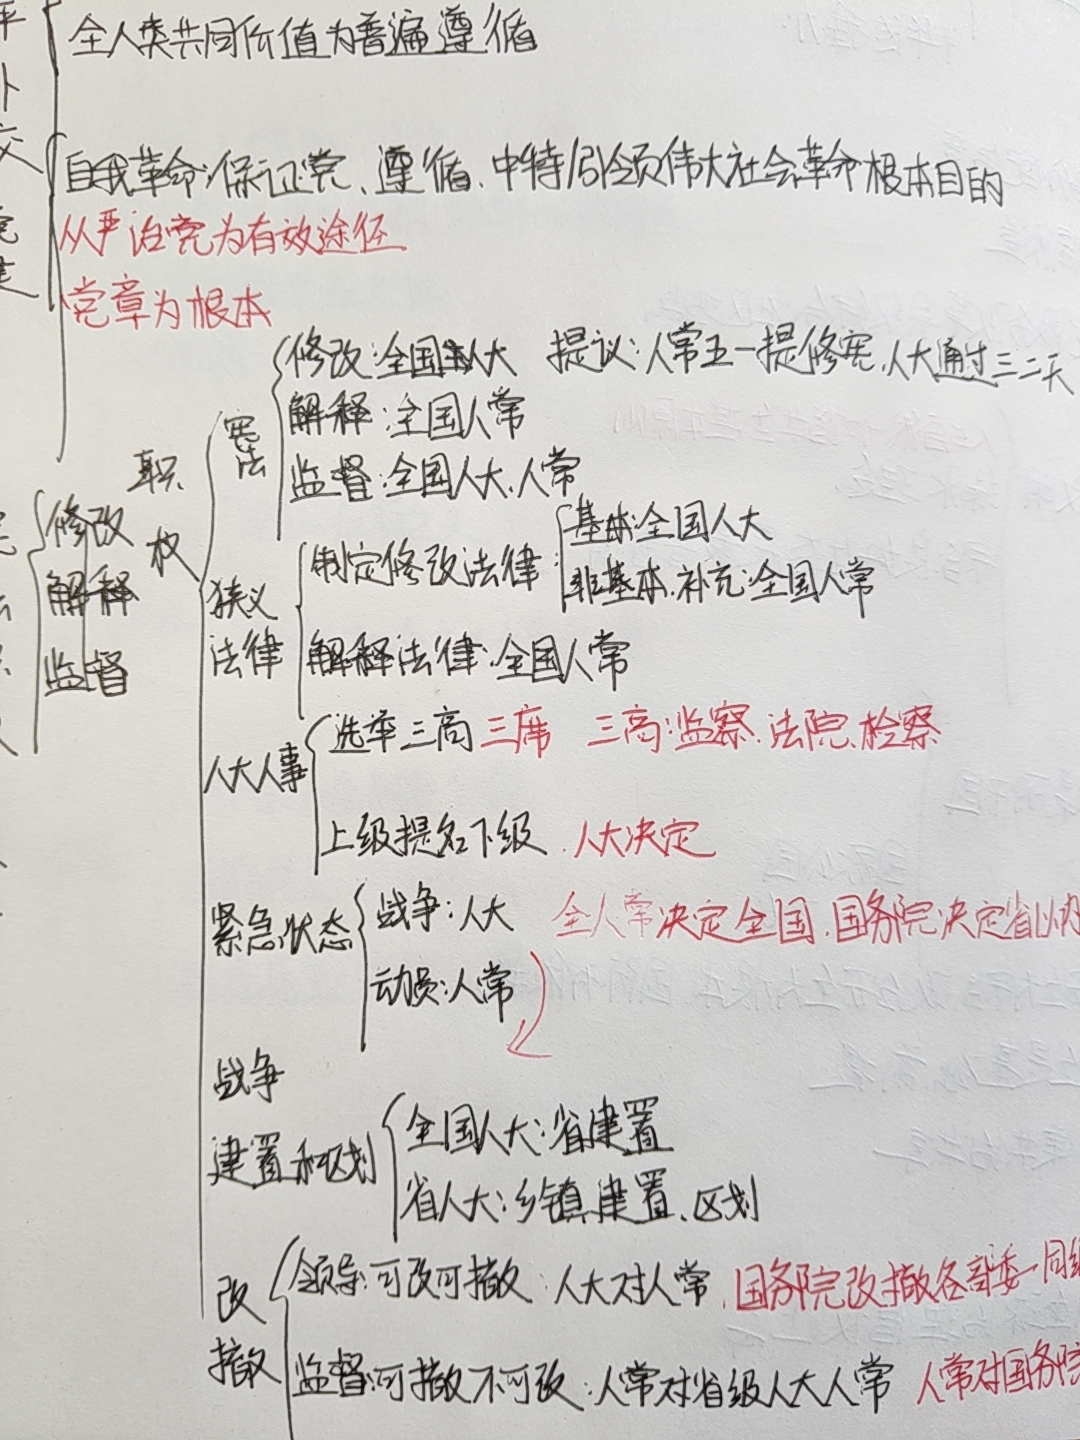 全人类共同价值为普遍遵循
外交
自我革命:保证党、遵循、中特引领伟大社会革命根本目的
从严治党为有效途径
党章为根本
修改
解释
监督
职权
宪法
修改:全国人大 提议:人常五一提修宪,人大通过三二天
解释:全国人常
监督:全国人大、人常
狭义法律
制定修改法律:
基本:全国人大
非基本、补充:全国人常
解释法律:全国人常
人大人事
选举三高三席 三高:监察、法院、检察
上级提名下级、人大决定
紧急状态
战争:人大 全人常决定全国,国务院决定省以内
动员:人常
战争
建置和区划
全国人大:省建置
省人大:乡镇建置、区划
改撤
领导:可改可撤:人大对人常,国务院改撤各部委、同级
监督:可撤不可改:人常对省级人大人常 人常对国务院